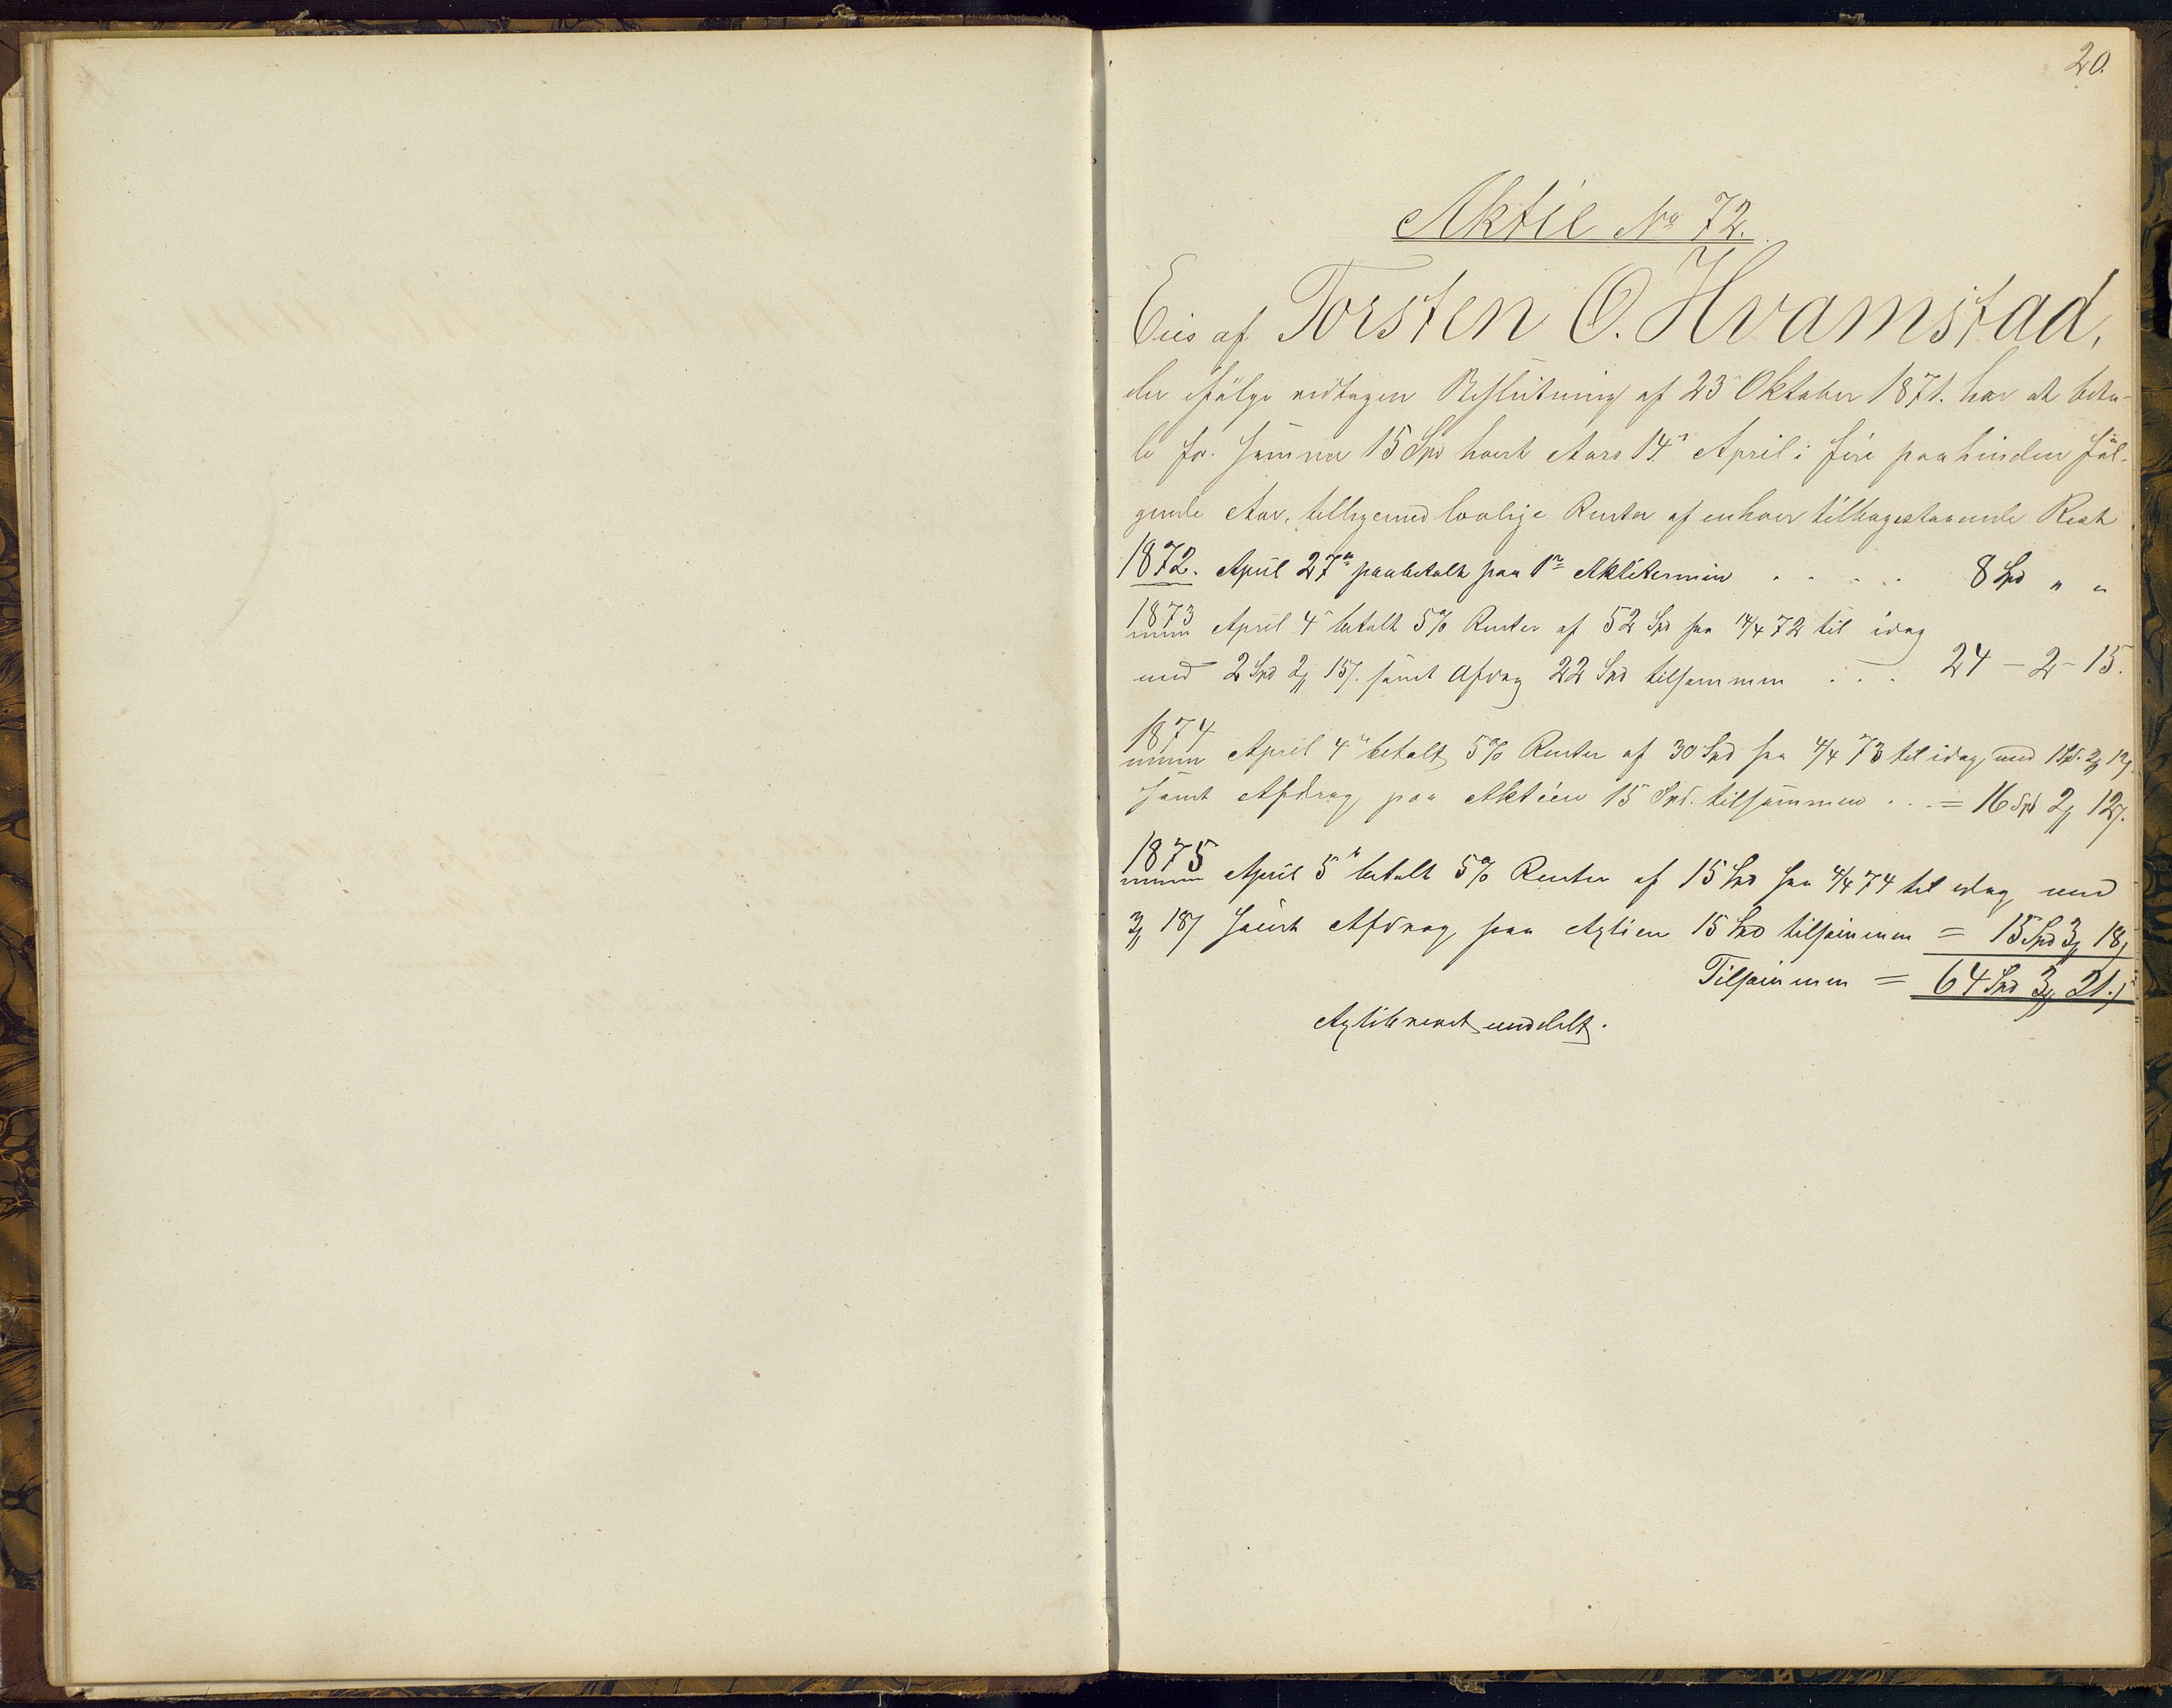 20.
Aktie No 72.
Eies af Torsten O. Hvamstad,
der ifølge vedtagen Beslutning af 23 Oktober 1871. har at beta-
le for samme 15 Spd hvert Aars 14de April i fire paa hinden føl-
gende Aar, tilligemed lovlige Renter af enhver tilbagestaaende Rest
1872. April 27de paabetalt paa 1ste Aktietermin . . . . . 8 Spd " "
1873 April 4de betalt 5% Renter af 52 Spd fra 14/4 72 til idag
med 2 Spd 2 ℳ 15 ß. samt Afdrag 22 Spd tilsammen . . . 24 - 2 - 15.
1874 April 4de betalt 5% Renter af 30 Spd fra 4/4 73 til idag, med 1 Spd. 2 ℳ 12 ß
samt Afdrag paa Aktien 15 Spd. tilsammen . . . = 16 Spd 2 ℳ 12 ß.
1875 April 5te betalt 5% Renter af 15 Spd fra 4/4 74 til idag med
3 ℳ 18 ß samt Afdrag paa Aktien 15 Spd tilsammen = 15 Spd 3 ℳ 18 ß
Tilsammen = 64 Spd 3 ℳ 21. ß
Aktiebrevet meddelt.